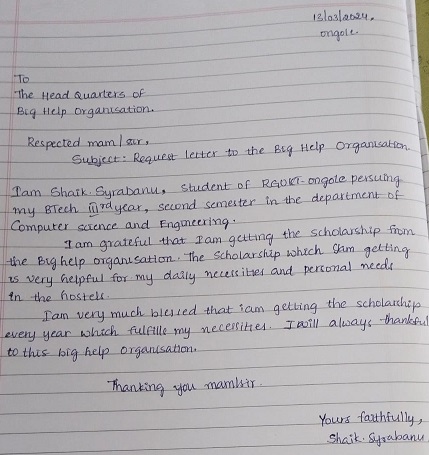 13/03/2024,
ongole.
To
The Head Quarters of
Big Help Organisation.
Respected mam/sir,
Subject: Request letter to the Big Help Organisation
Iam Shaik. Syrabanu, student of RGUKT-ongole persuing
my BTech IIIrd year, second semester in the department of
Computer science and Engineering.
I am grateful that Iam getting the scholarship from
the Big help organisation. The Scholarship which Iam getting
is very helpful for my daily necessities and personal needs
in the hostels.
Iam very much blessed that iam getting the scholarship
every year which fulfills my necessities. I will always thankful
to this big help organisation.
Thanking you mam/sir.
Yours faithfully,
Shaik. Syrabanu